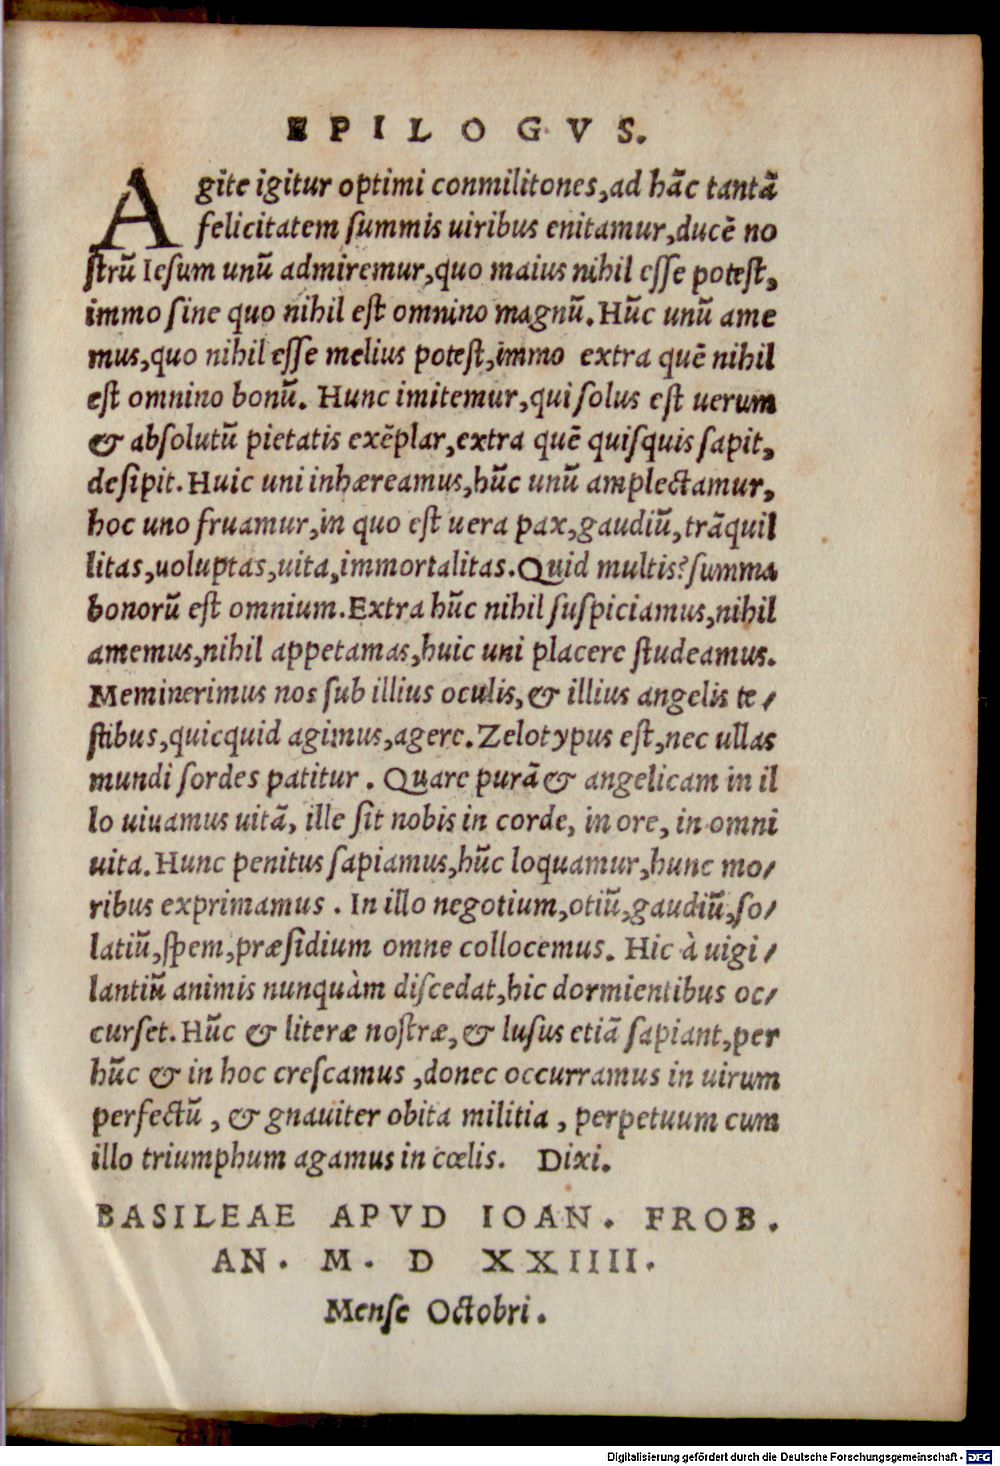 EPILOGVS.
Agite igitur optimi conmilitones,ad hāc tantā
felicitatem ſummis uiribus enitamur,ducē no
ſtrū Ieſum unū admiremur,quo maius nihil eſſe poteſt,
immo ſine quo nihil eſt omnino magnū. Hūc unū ame
mus,quo nihil eſſe melius poteſt,immo extra quē nihil
eſt omnino bonū. Hunc imitemur,qui ſolus eſt uerum
& abſolutū pietatis exēplar,extra quē quiſquis ſapit,
deſipit. Huic uni inhæreamus,hūc unū amplectamur,
hoc uno fruamur,in quo eſt uera pax,gaudiū,trāquil
litas,uoluptas,uita,immortalitas. Quid multis? ſumma
bonorū eſt omnium. Extra hūc nihil ſuſpiciamus,nihil
amemus,nihil appetamas,huic uni placere ſtudeamus.
Meminerimus nos ſub illius oculis,& illius angelis te/
ſtibus,quicquid agimus,agere. Zelotypus eſt,nec ullas
mundi ſordes patitur. Quare purā & angelicam in il
lo uiuamus uitā, ille ſit nobis in corde, in ore, in omni
uita. Hunc penitus ſapiamus,hūc loquamur,hunc mo/
ribus exprimamus. In illo negotium,otiū,gaudiū,ſo/
latiū,ſpem,præſidium omne collocemus. Hic à uigi/
lantiū animis nunquàm diſcedat,hic dormientibus oc/
curſet. Hūc & literæ noſtræ,& luſus etiā ſapiant,per
hūc & in hoc creſcamus,donec occurramus in uirum
perfectū, & gnauiter obita militia, perpetuum cum
illo triumphum agamus in cœlis. Dixi.
BASILEAE APVD IOAN. FROB.
AN. M. D XXIIII.
Menſe Octobri.
Digitalisierung gefördert durch die Deutsche Forschungsgemeinschaft - DFG